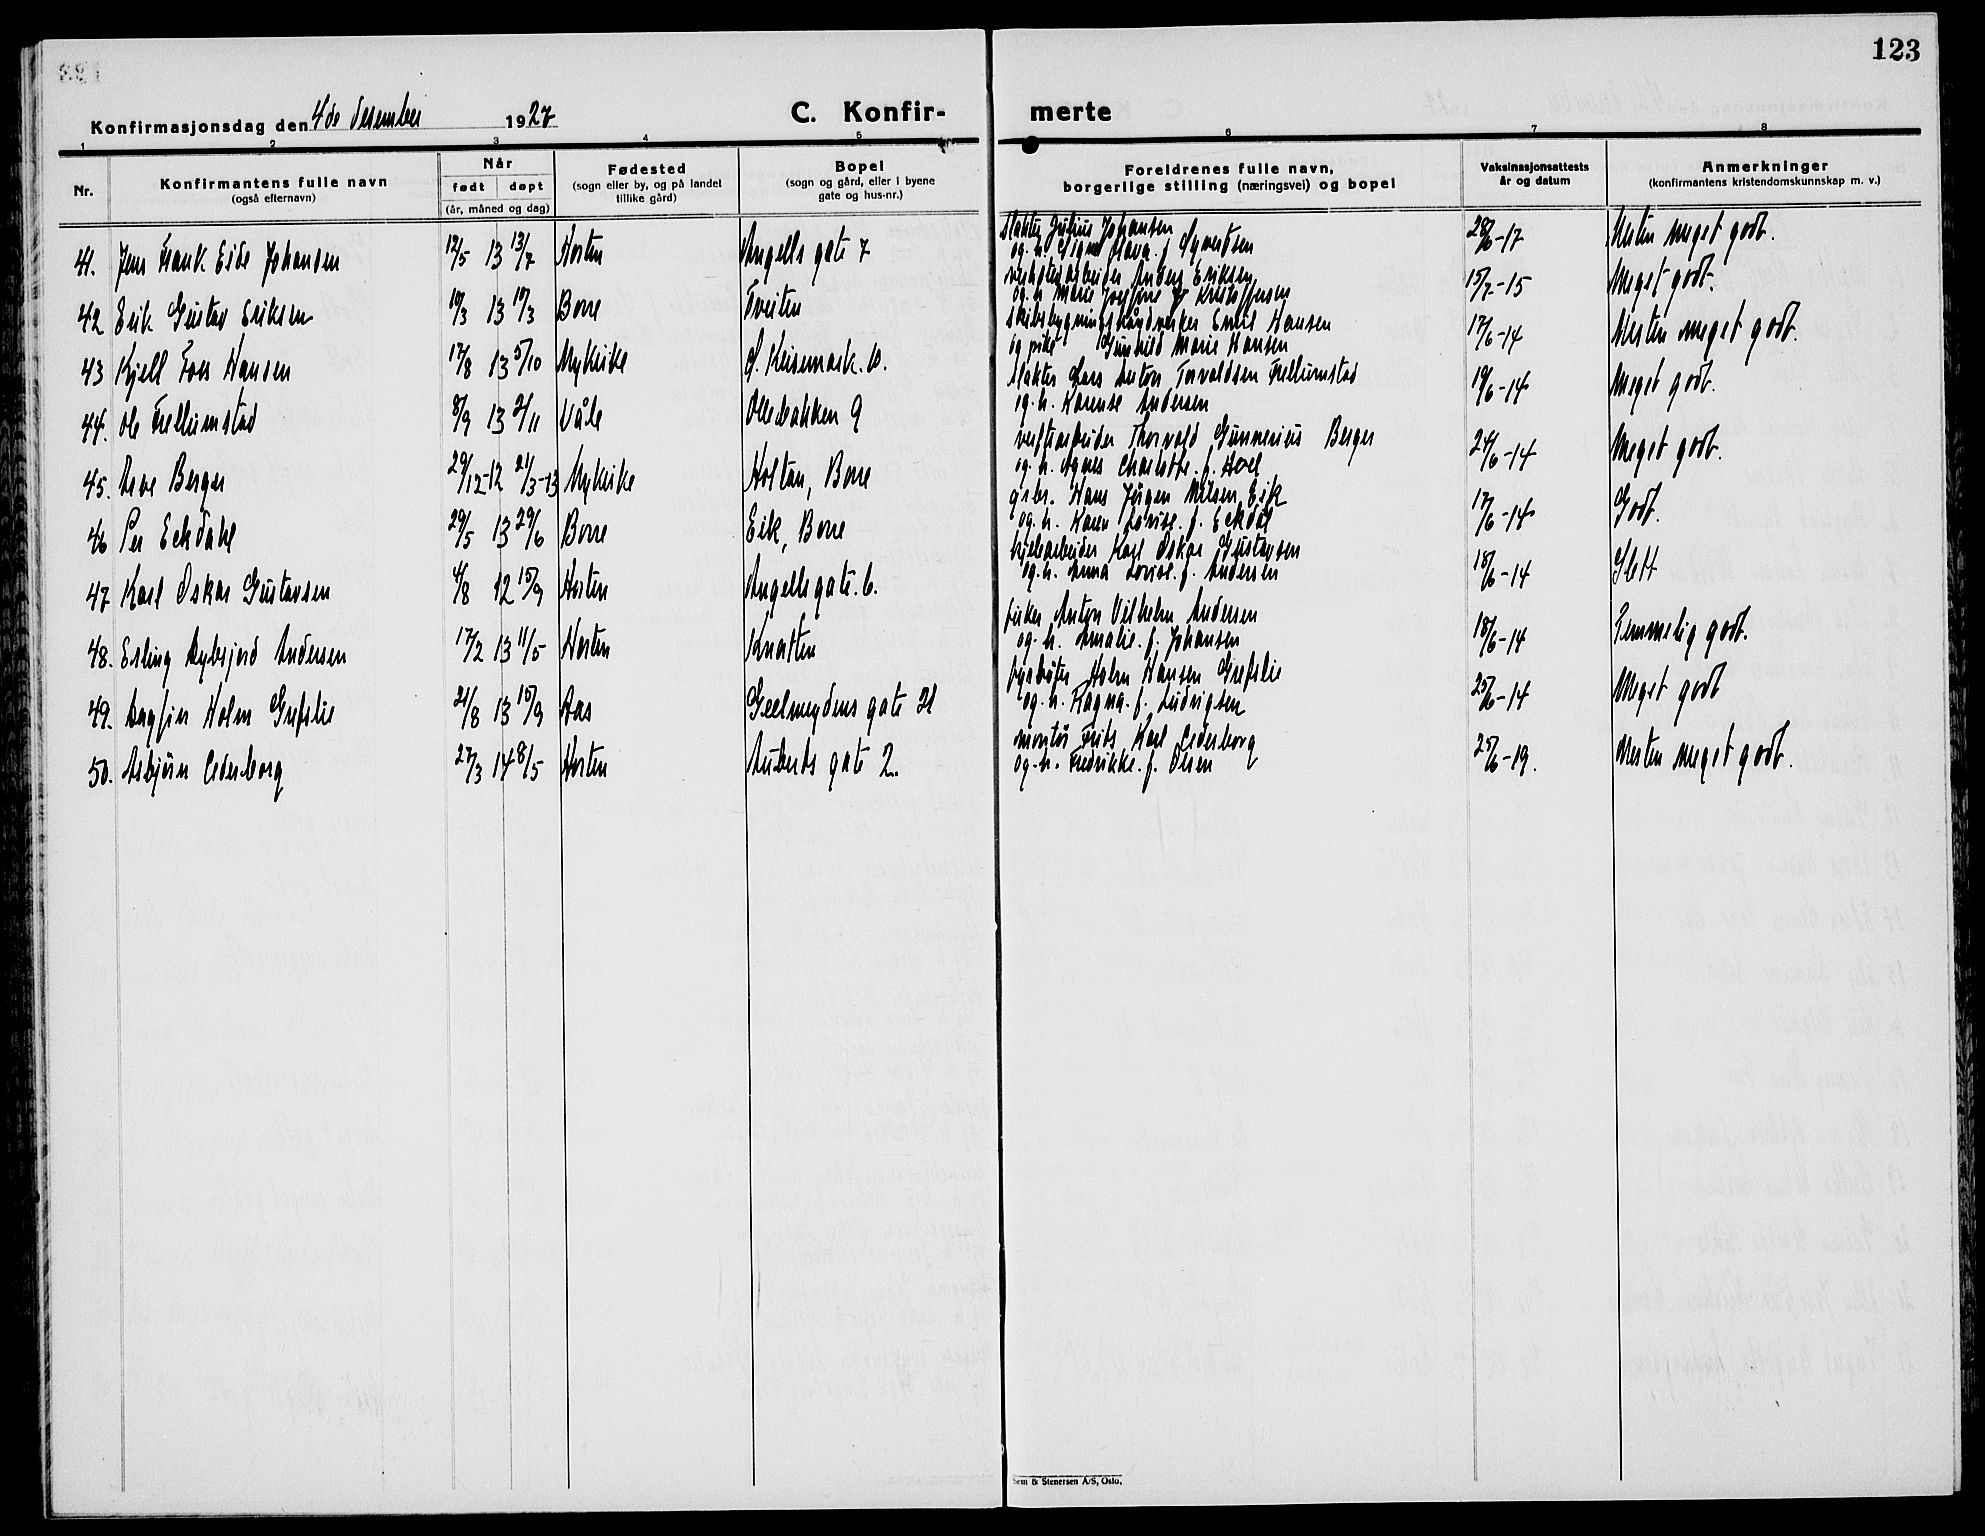 123
Konfirmasjonsdag den 4de desember 1927
C. Konfir-
merte
1 2 3 4 5 6 7 8
Nr.
Konfirmantens fulle navn
(også efternavn)
Når
født døpt
(år, måned og dag)
Fødested
(sogn eller by, og på landet
tillike gård)
Bopel
(sogn og gård, eller i byene
gate og hus-nr.)
Foreldrenes fulle navn,
borgerlige stilling (næringsvei) og bopel
Vaksinasjonsattests
år og datum
Anmerkninger
(konfirmantens kristendomskunnskap m. v.)
41. Jens Frank Eide Johansen 12/5 13 13/7 Horten Angells gate 7
Slakter Julius Johansen
og h. Signe f. Syvertsen
28/6-17 Nesten meget godt.
42 Erik Gustav Eriksen 10/3 13 19/3 Borre Tveiten
verkstedarbeider Anders Eriksen
og h. Marie Josefine f. Kristoffersen
15/7-15 Meget godt.
43 Kjell Foss Hansen 17/8 13 5/10 Nykirke
skibsbygningshåndverker Emil Hansen
og pike Gunhild Marie Hansen
17/6-14 Nesten meget godt.
44. Ole Frellumstad 8/9 13 2/11 Våle Ollebakken 9
slakter Lars Anton Torvaldsen Frellumstad
og h. Karense Andersen
19/6-14 Meget godt.
45. Arve Berger 29/12-12 21/3-13 Nykirke Holtan, Borre
verftsarbeider Thorvald Gunnerius Berger
og h. Agnes Charlotte f. Hoel
24/6-14 Meget godt.
46 Per Eckdahl 29/5 13 29/6 Borre Eik, Borre
grbr. Hans Jørgen Nilsen, Eik
og h. Karen Lovise f. Eckdal
17/6-14 Godt.
47 Karl Oskar Gustavsen 4/8 12 15/9 Horten Angells gate 6.
Karl Oskar Gustavsen
og h. Anna Lovise f. Andersen
18/6-14 Slett
48. Erling Andersen 17/2 13 11/5 Horten Knatten
fisker Anton Vilhelm Andersen
og h. Amalie f. Johansen
18/6-14 Temmelig godt.
49. Dagfin Holm Grefslie 21/8 13 15/9 Aas Geelmuydens gate
fyrbøter Holm Hansen Grefslie
og h. Ragna f. Ludvigsen
25/6-14 Meget godt
50. Asbjørn Cederborg 27/3 14 8/5 Horten Auberts gate 2.
montør Frits Karl Cederborg
og h. Fredrikke f. Olsen
25/6-19. Nesten meget godt.
Sem & Stenersen A/S, Oslo.